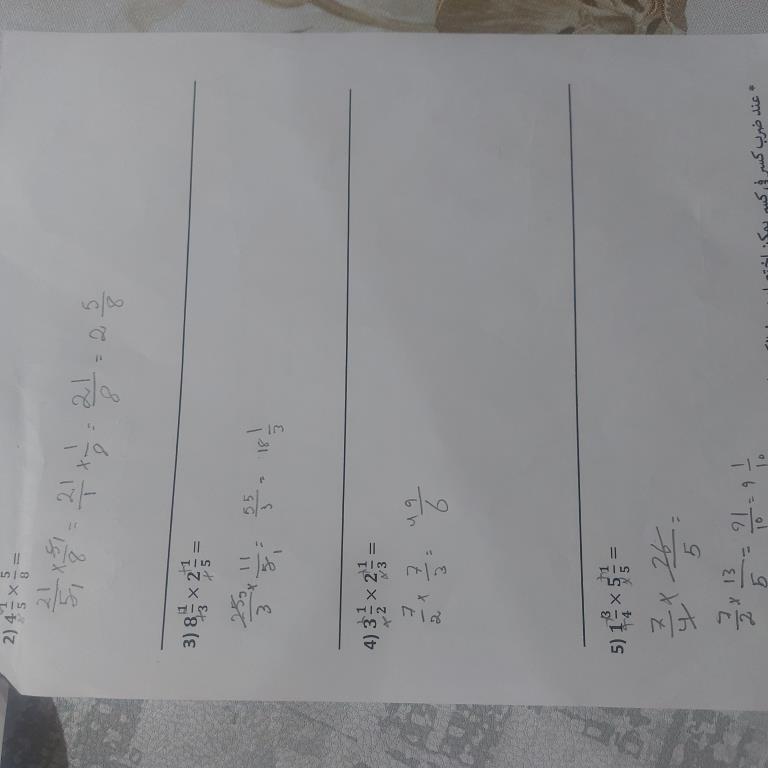 2) 4 1/5 × 5/8 =
21/5 1 × 5 1/8 = 21/1 × 1/8 = 21/8 = 2 5/8
3) 8 1/3 × 2 1/5 =
25 5/3 × 11/5 1 = 55/3 = 18 1/3
4) 3 1/2 × 2 1/3 =
7/2 × 7/3 = 49/6
5) 1 3/4 × 5 1/5 =
7/4 × 26/5 =
7/2 × 13/5 = 91/10 = 9 1/10
* عند ضرب كسر في كسر يمكن